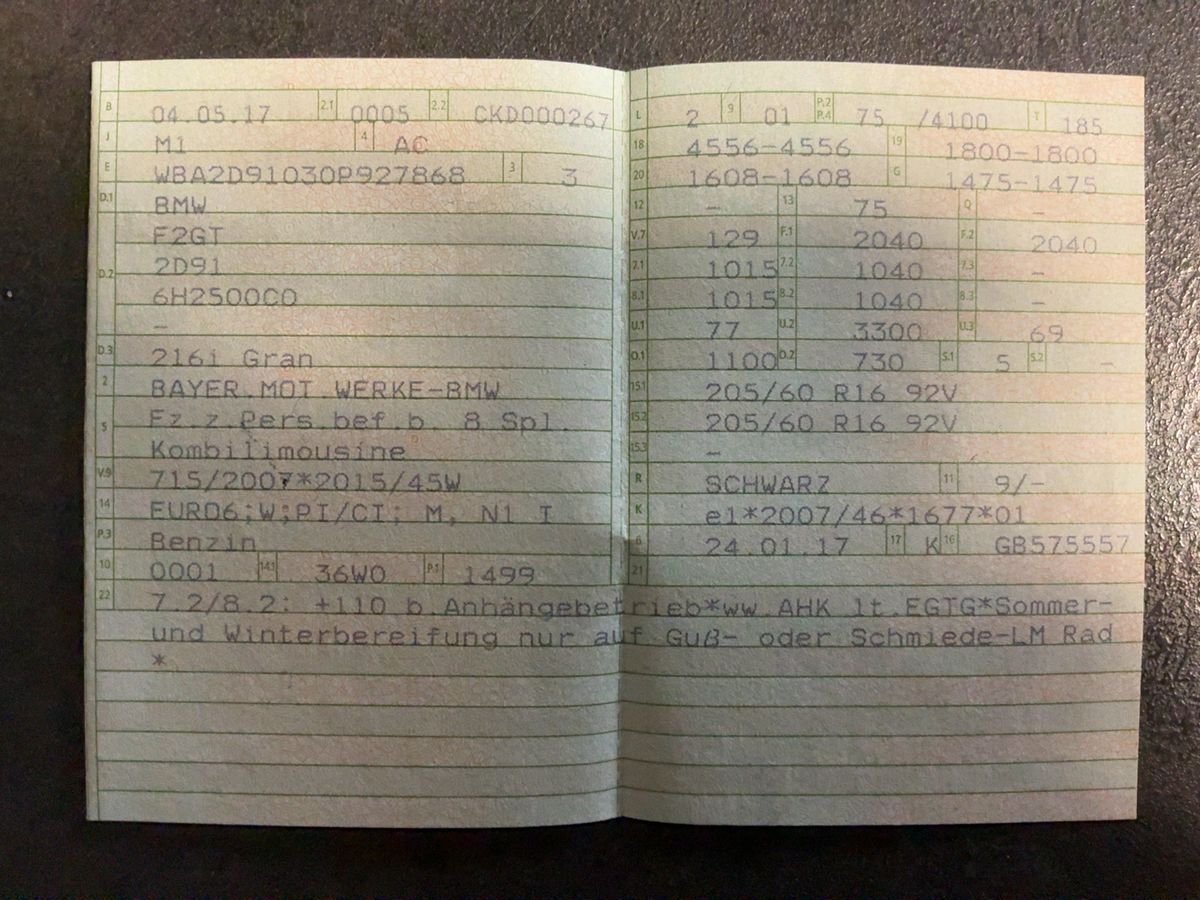 B 04.05.17 2.1 0005 2.2 CKD000267
J M1 4 AC
E WBA2D91030P927868 3 3
D.1 BMW
F2GT
D.2 2D91
6H2500C0
–
D.3 216i Gran
2 BAYER.MOT.WERKE-BMW
5 Fz.z.Pers.bef.b. 8 Spl.
Kombilimousine
V.9 715/2007*2015/45W
14 EURO6;W;PI/CI; M, N1 I
P.3 Benzin
10 0001 14.1 36W0 P.1 1499
L 2 9 01 P.2 P.4 75 /4100 T 185
18 4556-4556 19 1800-1800
20 1608-1608 G 1475-1475
12 – 13 75 Q –
V.7 129 F.1 2040 F.2 2040
7.1 1015 7.2 1040 7.3 –
8.1 1015 8.2 1040 8.3 –
U.1 77 U.2 3300 U.3 69
O.1 1100 O.2 730 S.1 5 S.2 –
15.1 205/60 R16 92V
15.2 205/60 R16 92V
15.3 –
R SCHWARZ 11 9/-
K e1*2007/46*1677*01
6 24.01.17 17 K 16 GB575557
21
22 7.2/8.2: +110 b.Anhängebetrieb*ww.AHK lt.EGTG*Sommer-
und Winterbereifung nur auf Guß- oder Schmiede-LM Rad
*